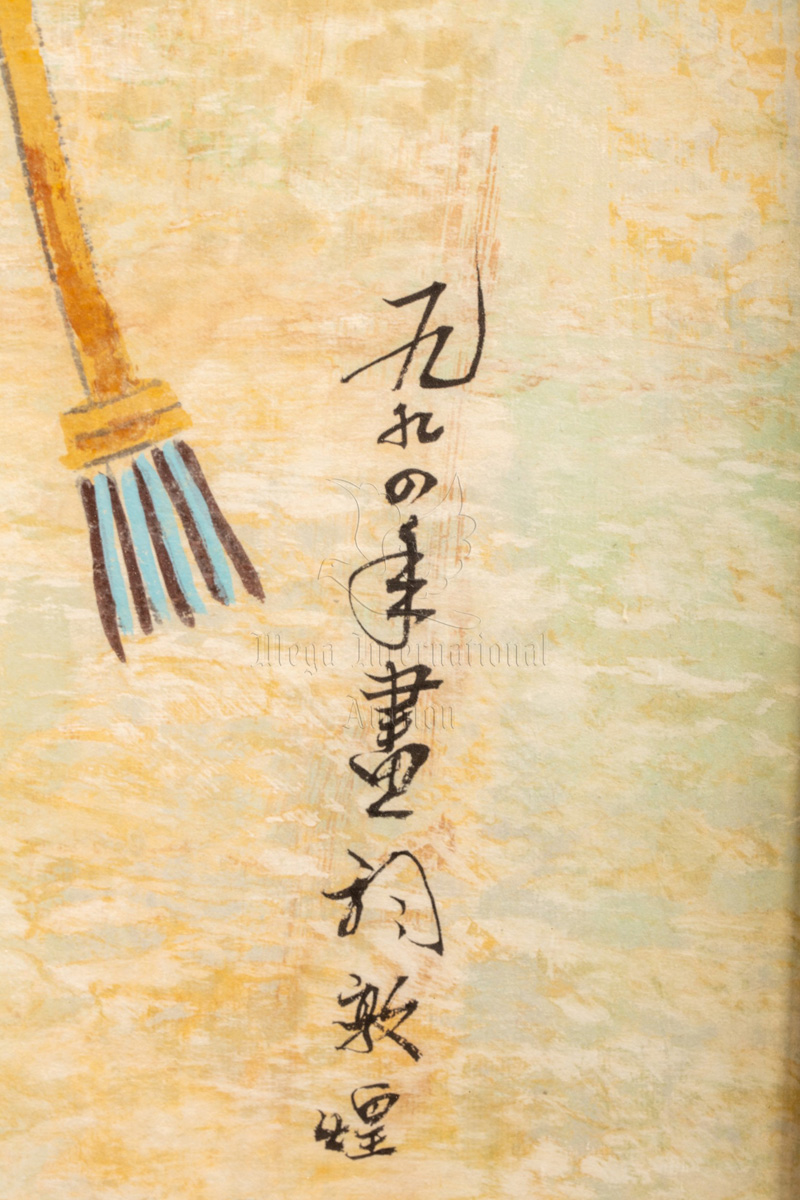 一九九四年畫敦煌
Mega International
Auction